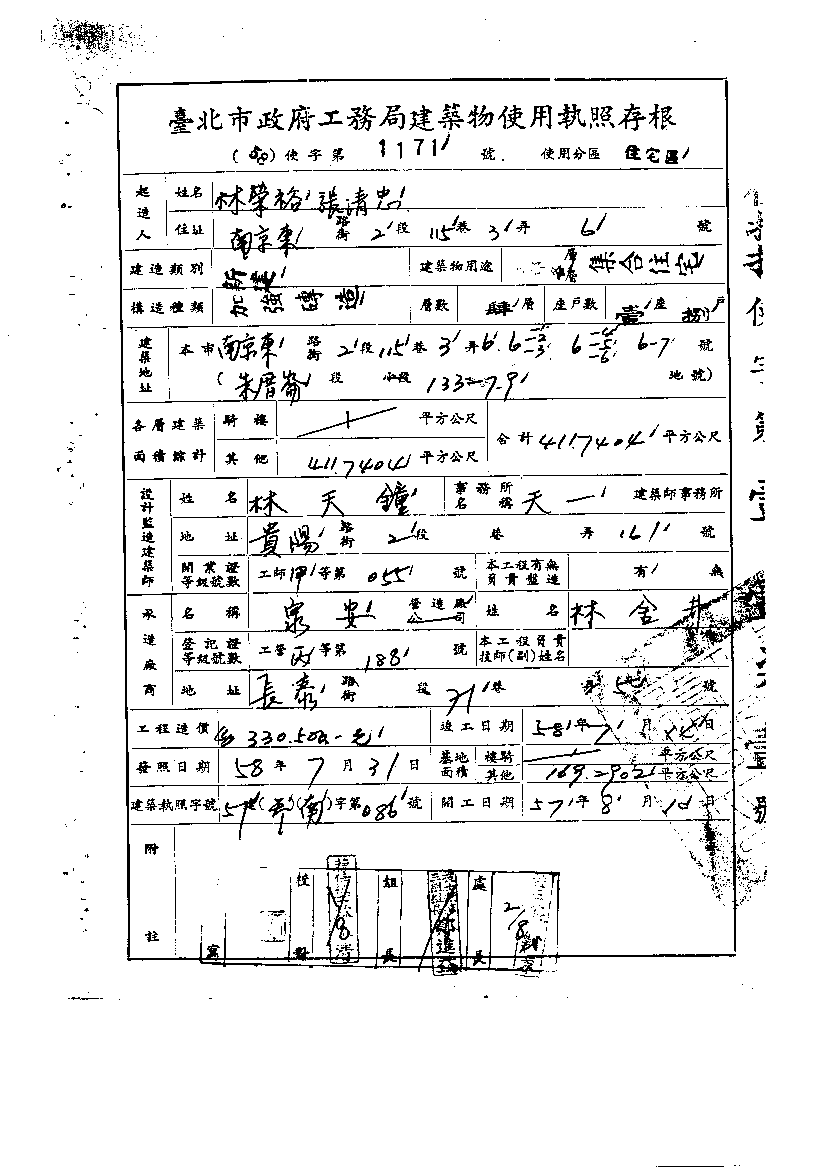 臺北市政府工務局建築物使用執照存根
使字第 1171 號 使用分區 住宅區
起造人 姓名 林榮裕 張清忠
住址 南京東 路街 2 段 115 巷 3 弄 6 號
建造類別 新建 建築物用途 集合住宅
構造種類 加強磚造 層數 肆 層 座戶數 壹 座 捌 戶
建築地址 本市 南京東 路街 2 段 115 巷 3 弄 6 6-1-2-3 6-4-5-6 6-7 號
(朱厝崙 段 小段 133-7.9 地號)
各層建築面積綜計 騎樓 平方公尺 合計 411.7404 平方公尺
其他 411.7404 平方公尺
設計監造建築師 姓名 林天鐘 事務所名稱 天一 建築師事務所
地址 貴陽 路街 2 段 巷 弄 161 號
開業證等級號數 工師 甲 等第 055 號 本工程有無負責監造 有 無
承造廠商 名稱 泉安 營造廠公司 姓名 林舍井
登記證等級號數 工營 丙 等第 188 號 本工程負責技師(副)姓名
地址 長泰 路街 段 71 巷 號
工程造價 330.500.-元 竣工日期 58 年 7 月 日
發照日期 58 年 7 月 31 日 基地面積 樓騎 平方公尺
其他 169.2902 平方公尺
建築執照字號 字第 086 號 開工日期 57 年 8 月 10 日
附註
核對 組長 處長